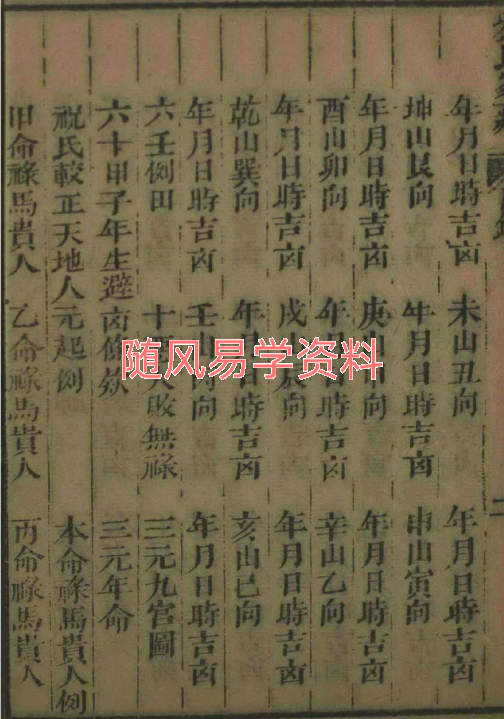 年月日時吉凶 未山丑向 年月日時吉凶
坤山艮向 年月日時吉凶 申山寅向
年月日時吉凶 庚山向 年月日時吉凶
酉山卯向 年月日時吉凶 辛山乙向
年月日時吉凶 戌向 年月日時吉凶
乾山巽向 年月日時吉凶 亥山巳向
年月日時吉凶 壬山向 年月日時吉凶
六壬例田 十敗無祿 三元九宮圖
六十甲子年生避凶條欵 三元年命
祝氏較正天地人元起例 本命祿馬貴人例
甲命祿馬貴人 乙命祿馬貴人 丙命祿馬貴人
随风易学资料